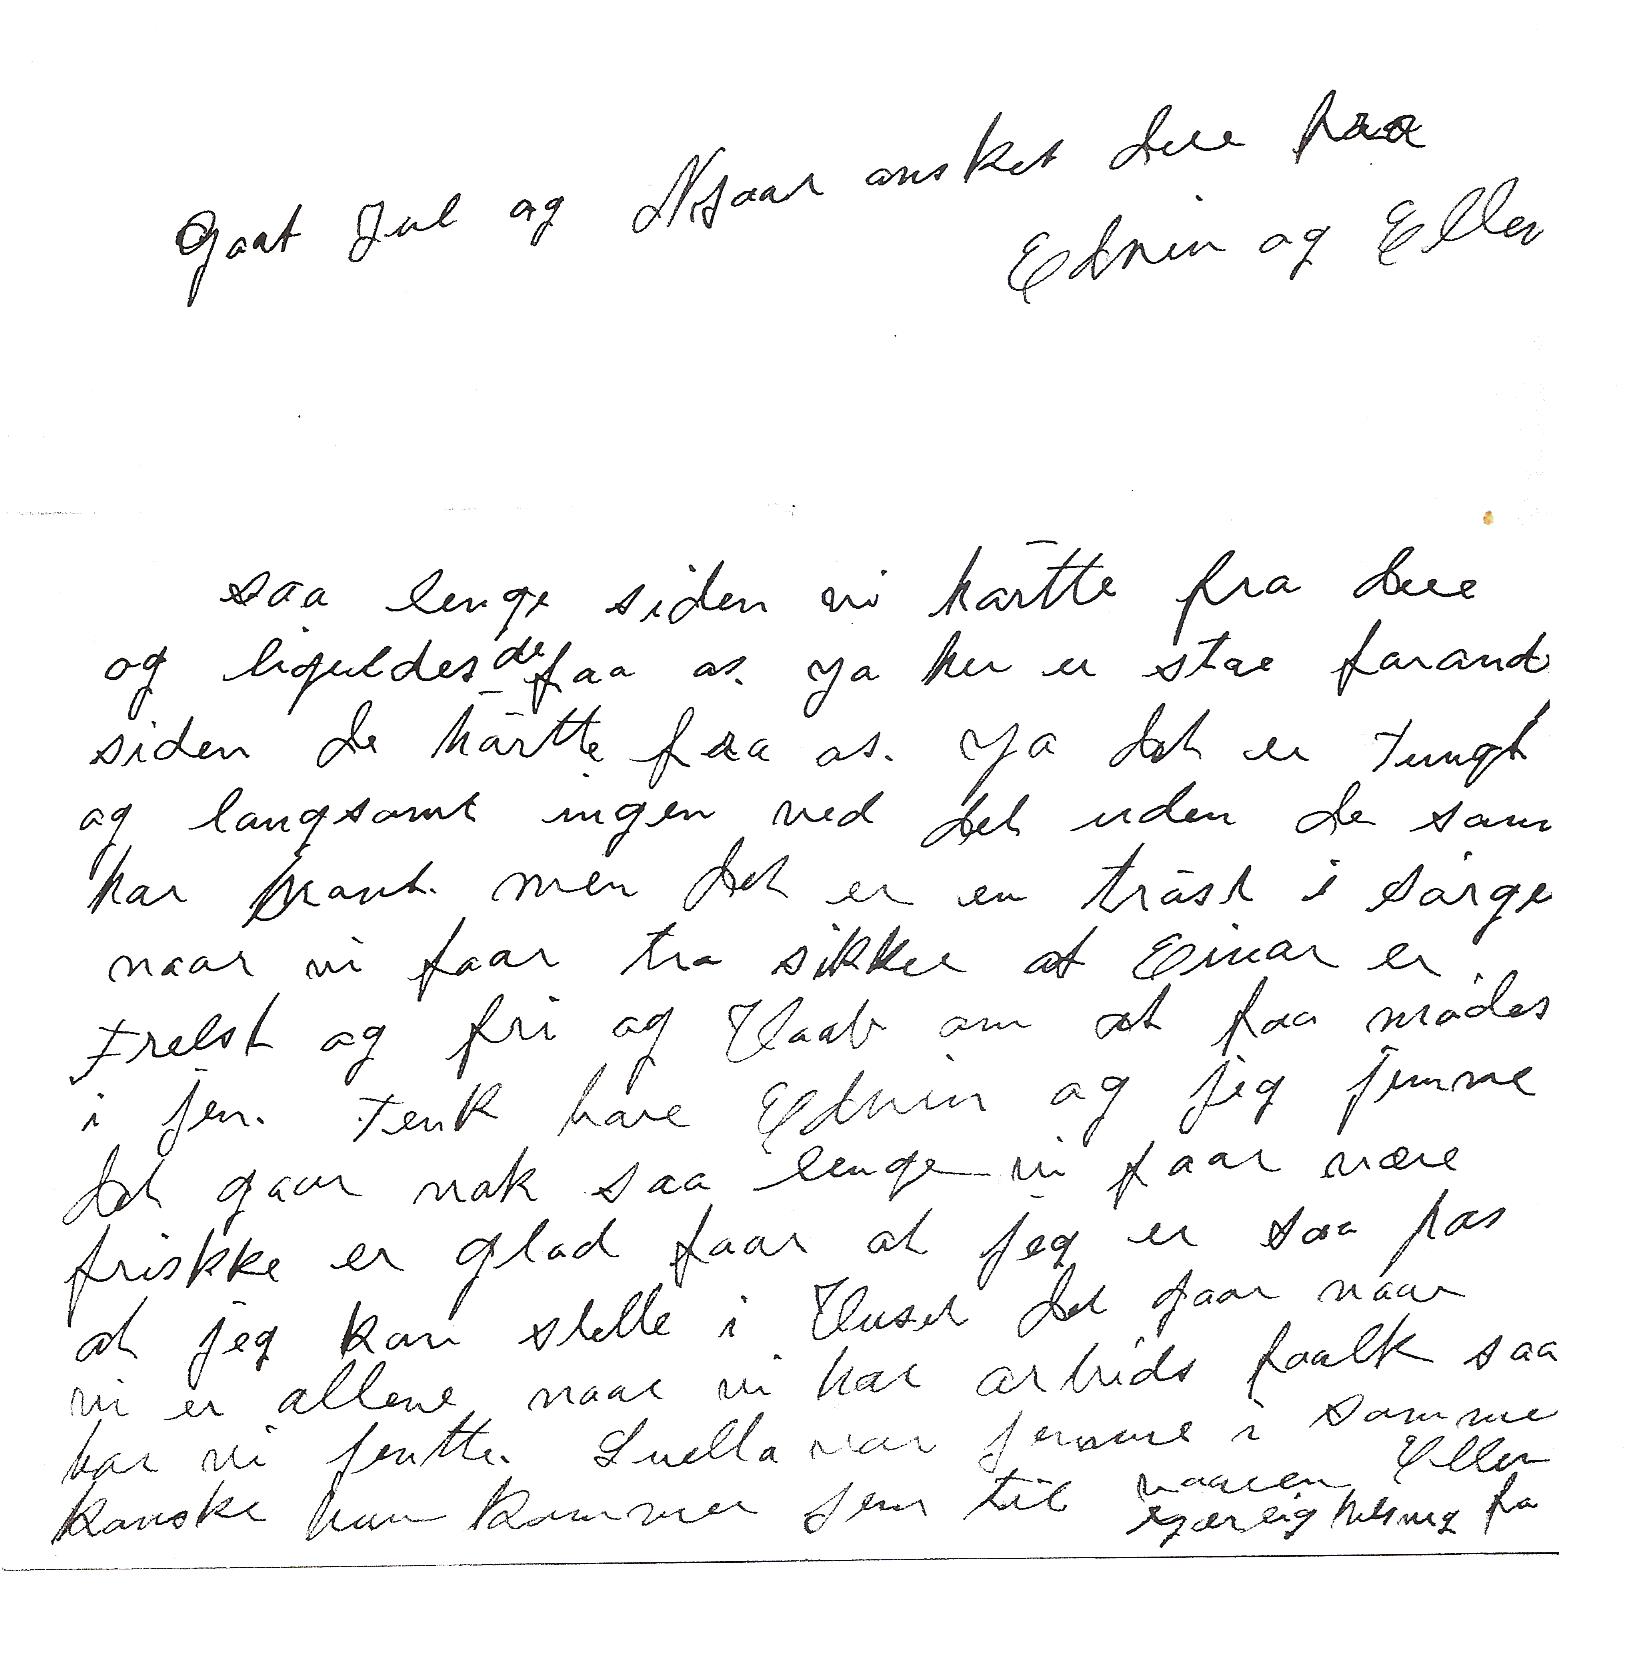 Gaat Jul og Nyaar ansket dere fraa
Edvin og Ellen
saa lenge siden vi hãrtte fra dere
og ligeldes de faa os. ya her er stor forand
siden de hãrtte fraa os. ya det er tungt
og langsomt ingen ved det uden de som
har prant. men det er en trãst i sãrge
naar vi faar tro sikker at Einar er
Frelst og fri og Haab om at faa mãdes
i jen. Tenk bare Edvin og jeg jemme
det gaar nok saa lenge vi faar være
friskke er glad faar at jeg er saa pas
at jeg kan stelle i Huset det gaar naar
vi er allene naar vi har arbeids faalk saa
har vi jentte. Luella var jemme i somme
kanske hun kommer jem til vaaren Ellen
kjærlig hilsning fra